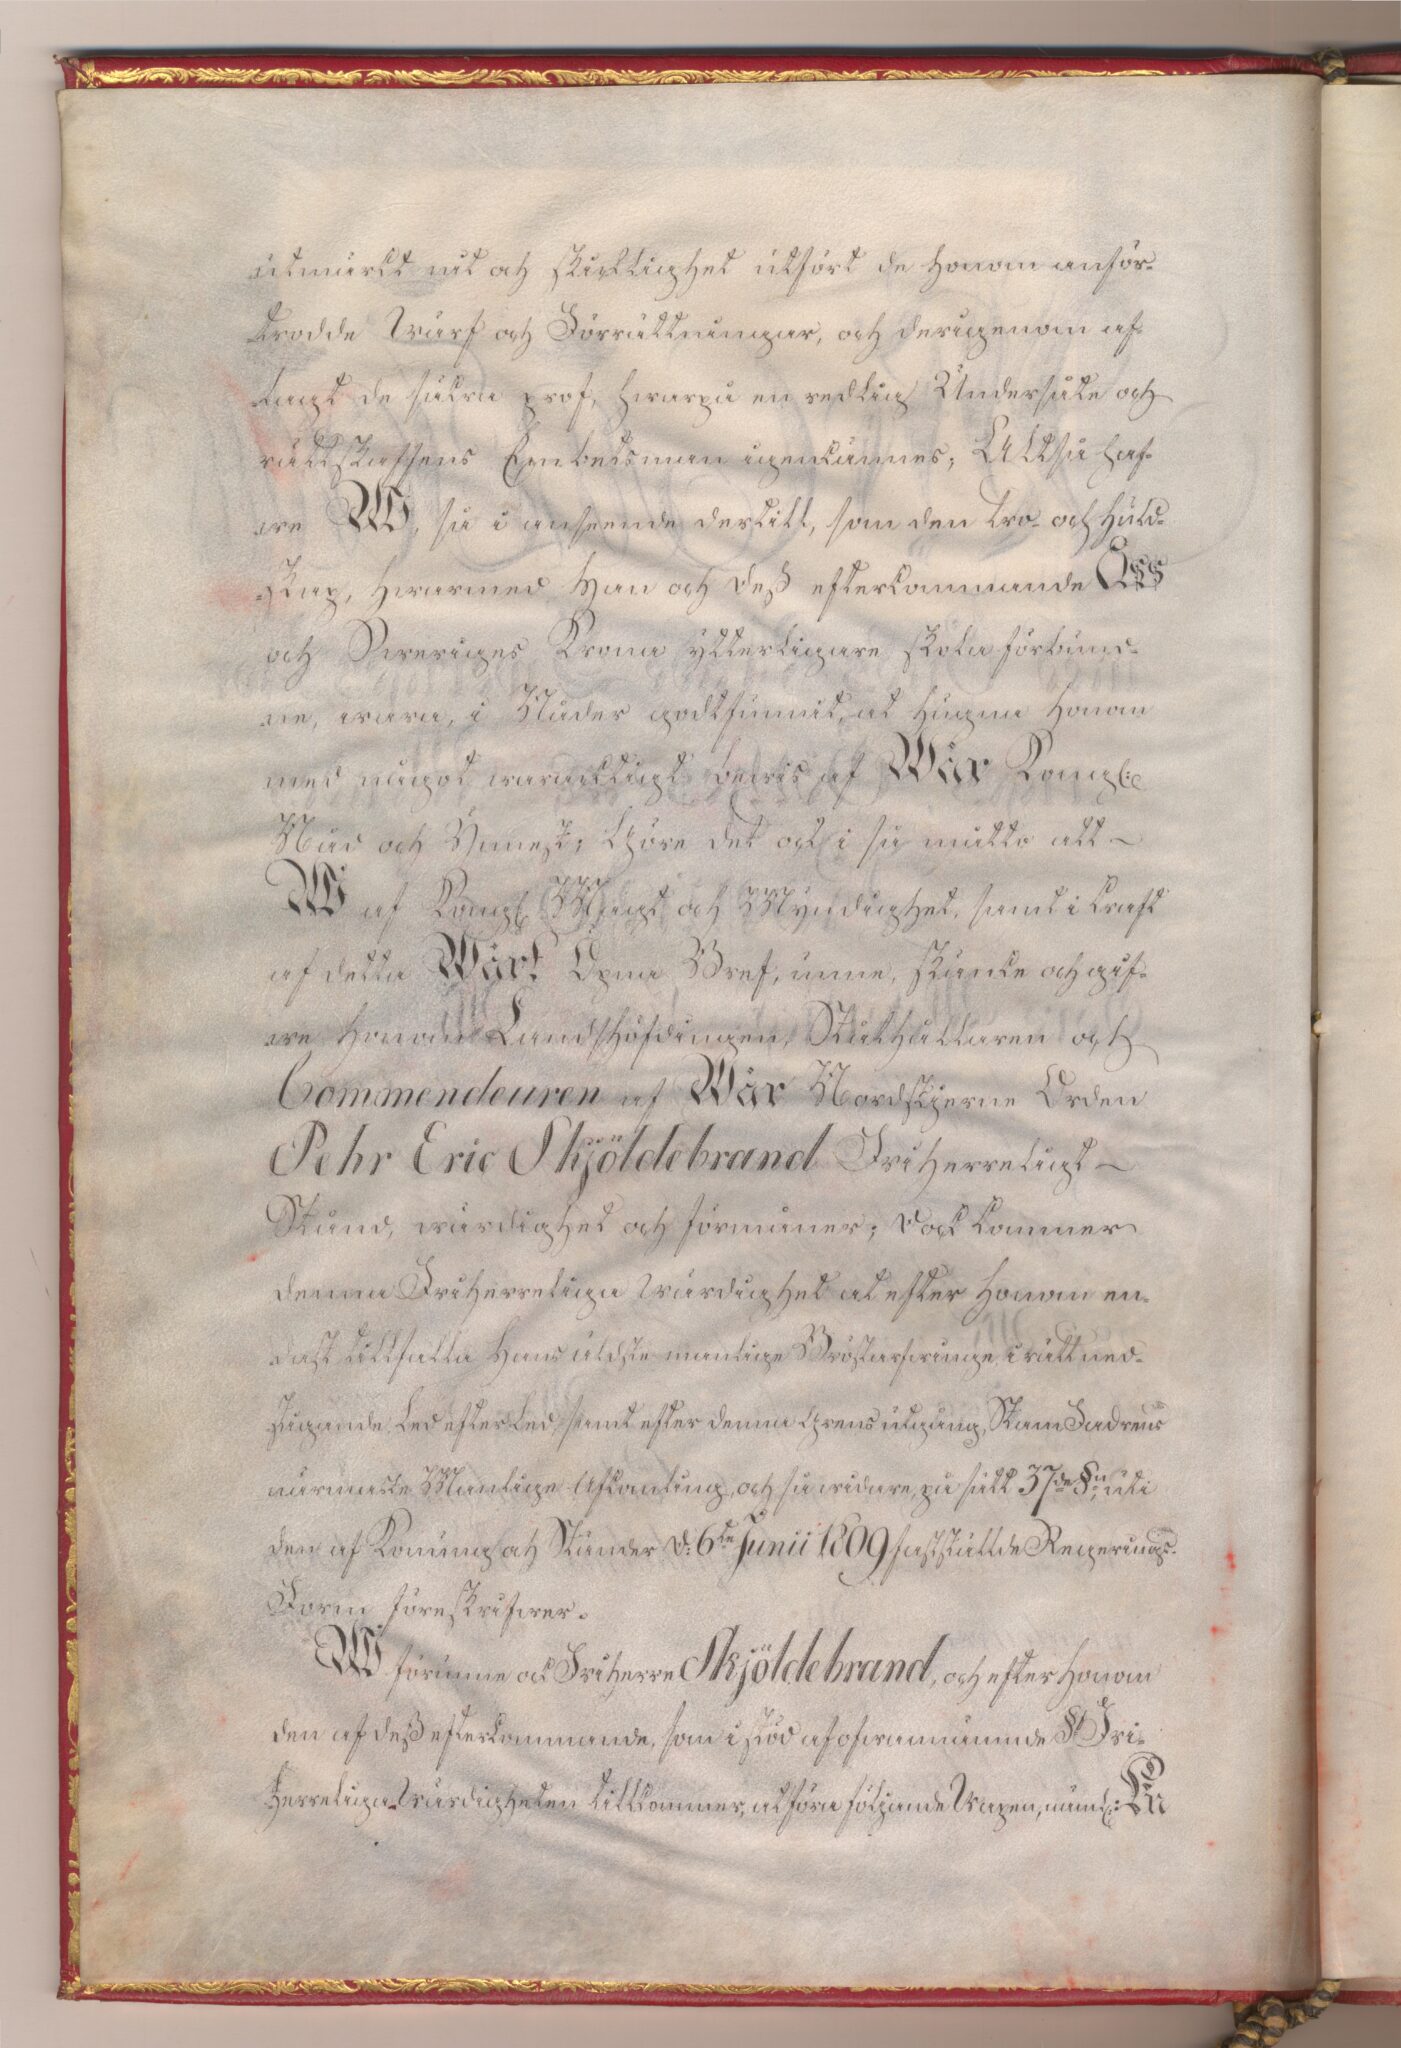 utmärkt nit och skicklighet utfört de honom anför-
trodde Wärf och Förrättningar, och derigenom af-
lagt de säkra prof, hwarpå en redlig Undersåte och
rättskaffens Embetsman igenkännes; Altså haf-
we Wi, så i anseende dertill, som den tro- och huld-
skap, hwarmed Han och deß efterkommande Oss
och Sweriges Krona ytterligare skola förbind-
ne, wara, i Nåder godtfunnit, at hugna honom
med något waracktigt bewis af Wår Kongl:e
Nåd och Ynnest; Göre det ock i så måtto att
Wi af Kongl. Magt och Myndighet, samt i kraft
af detta Wårt Öpna Bref, unne, skänke och gif-
we honom Landshöfdingen, Ståthållaren och
Commendeuren af Wår Nordstjerne Orden
Pehr Eric Skjöldebrand Friherreligt
Stånd, wärdighet och förmåner; dock kommer
denna Friherreliga Wärdighet at efter honom en-
dast tillfalla Hans äldste manlige Bröstarfwinge, i rätt ned-
stigande Led efter Led, samt efter denna Grens utgång, Stam Fadrens
närmaste Manlige Afkomling, och så widare, på sätt 37de §n uti
den af Konung och Ständer d: 6te Junii 1809 faststälde Regerings-
Form föreskrifwer.
Wi förunne ock Friherre Skjöldebrand, och efter honom
den af deß efterkommande, som i stöd af ofwannämnde § Fri-
herreliga Wärdigheten tillkommer, at föra följande Wapen, näml: En